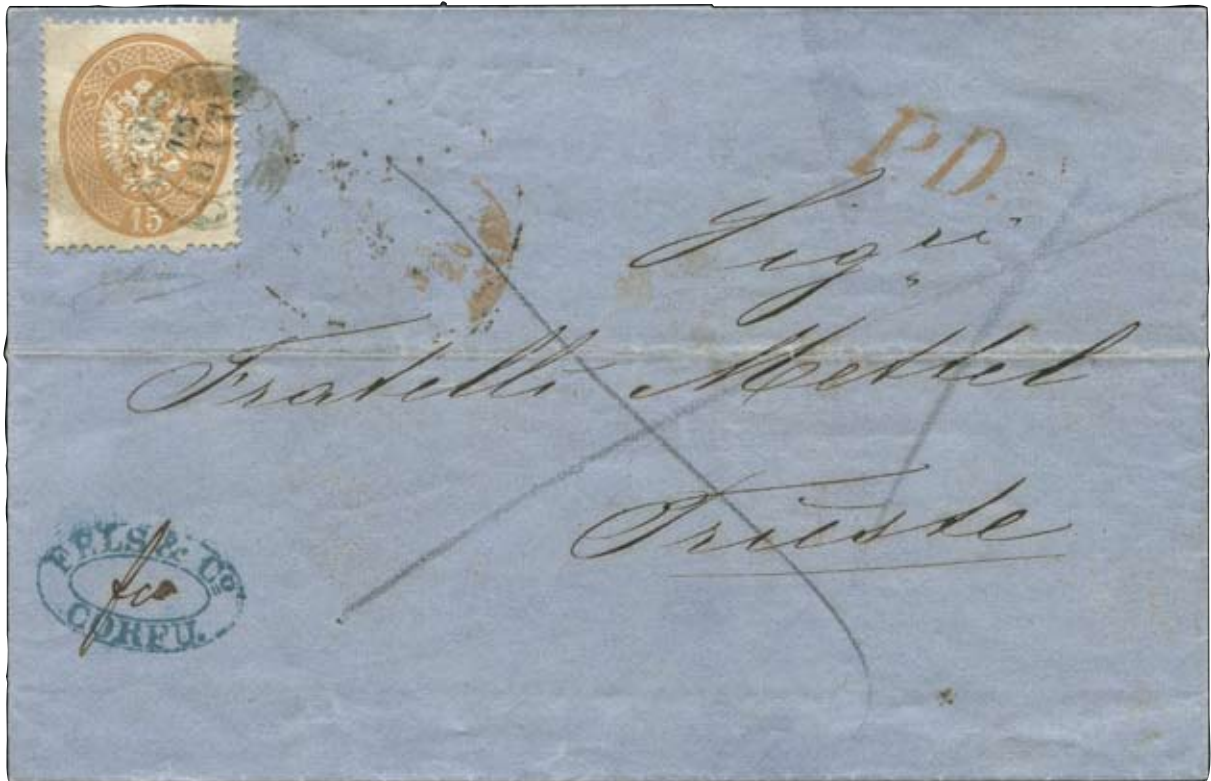 15
P.D.
Sigri
Fratelli Mettel
Trieste
FELS & Co
fco
CORFU.